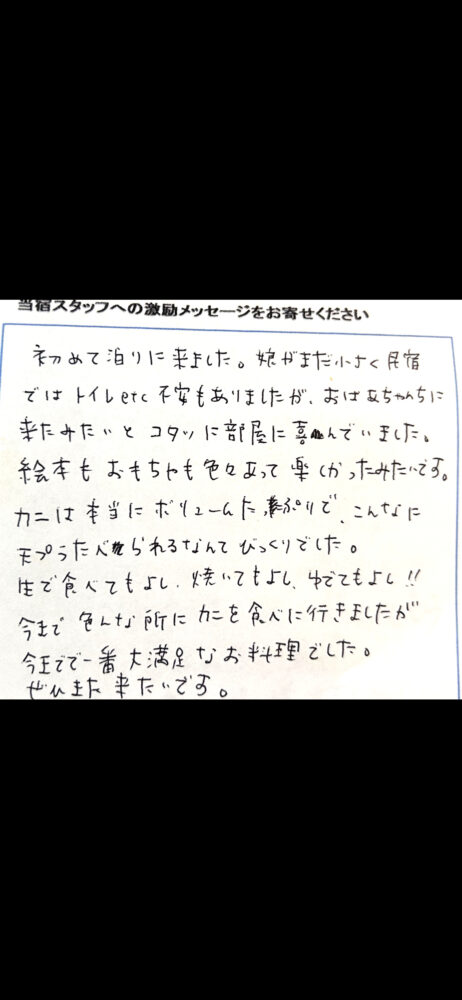 当宿スタッフへの激励メッセージをお寄せください
初めて泊りに来ました。娘がまだ小さく民宿
ではトイレetc不安もありましたが、おばあちゃんちに
来たみたいとコタツに部屋に喜んでいました。
絵本もおもちゃも色々あって楽しかったみたいです。
カニは本当にボリュームたっぷりで、こんなに
天プラたべられるなんてびっくりでした。
生で食べてもよし、焼いてもよし、ゆでてもよし!!
今まで色んな所にカニを食べに行きましたが
今までで一番大満足なお料理でした。
ぜひまた来たいです。